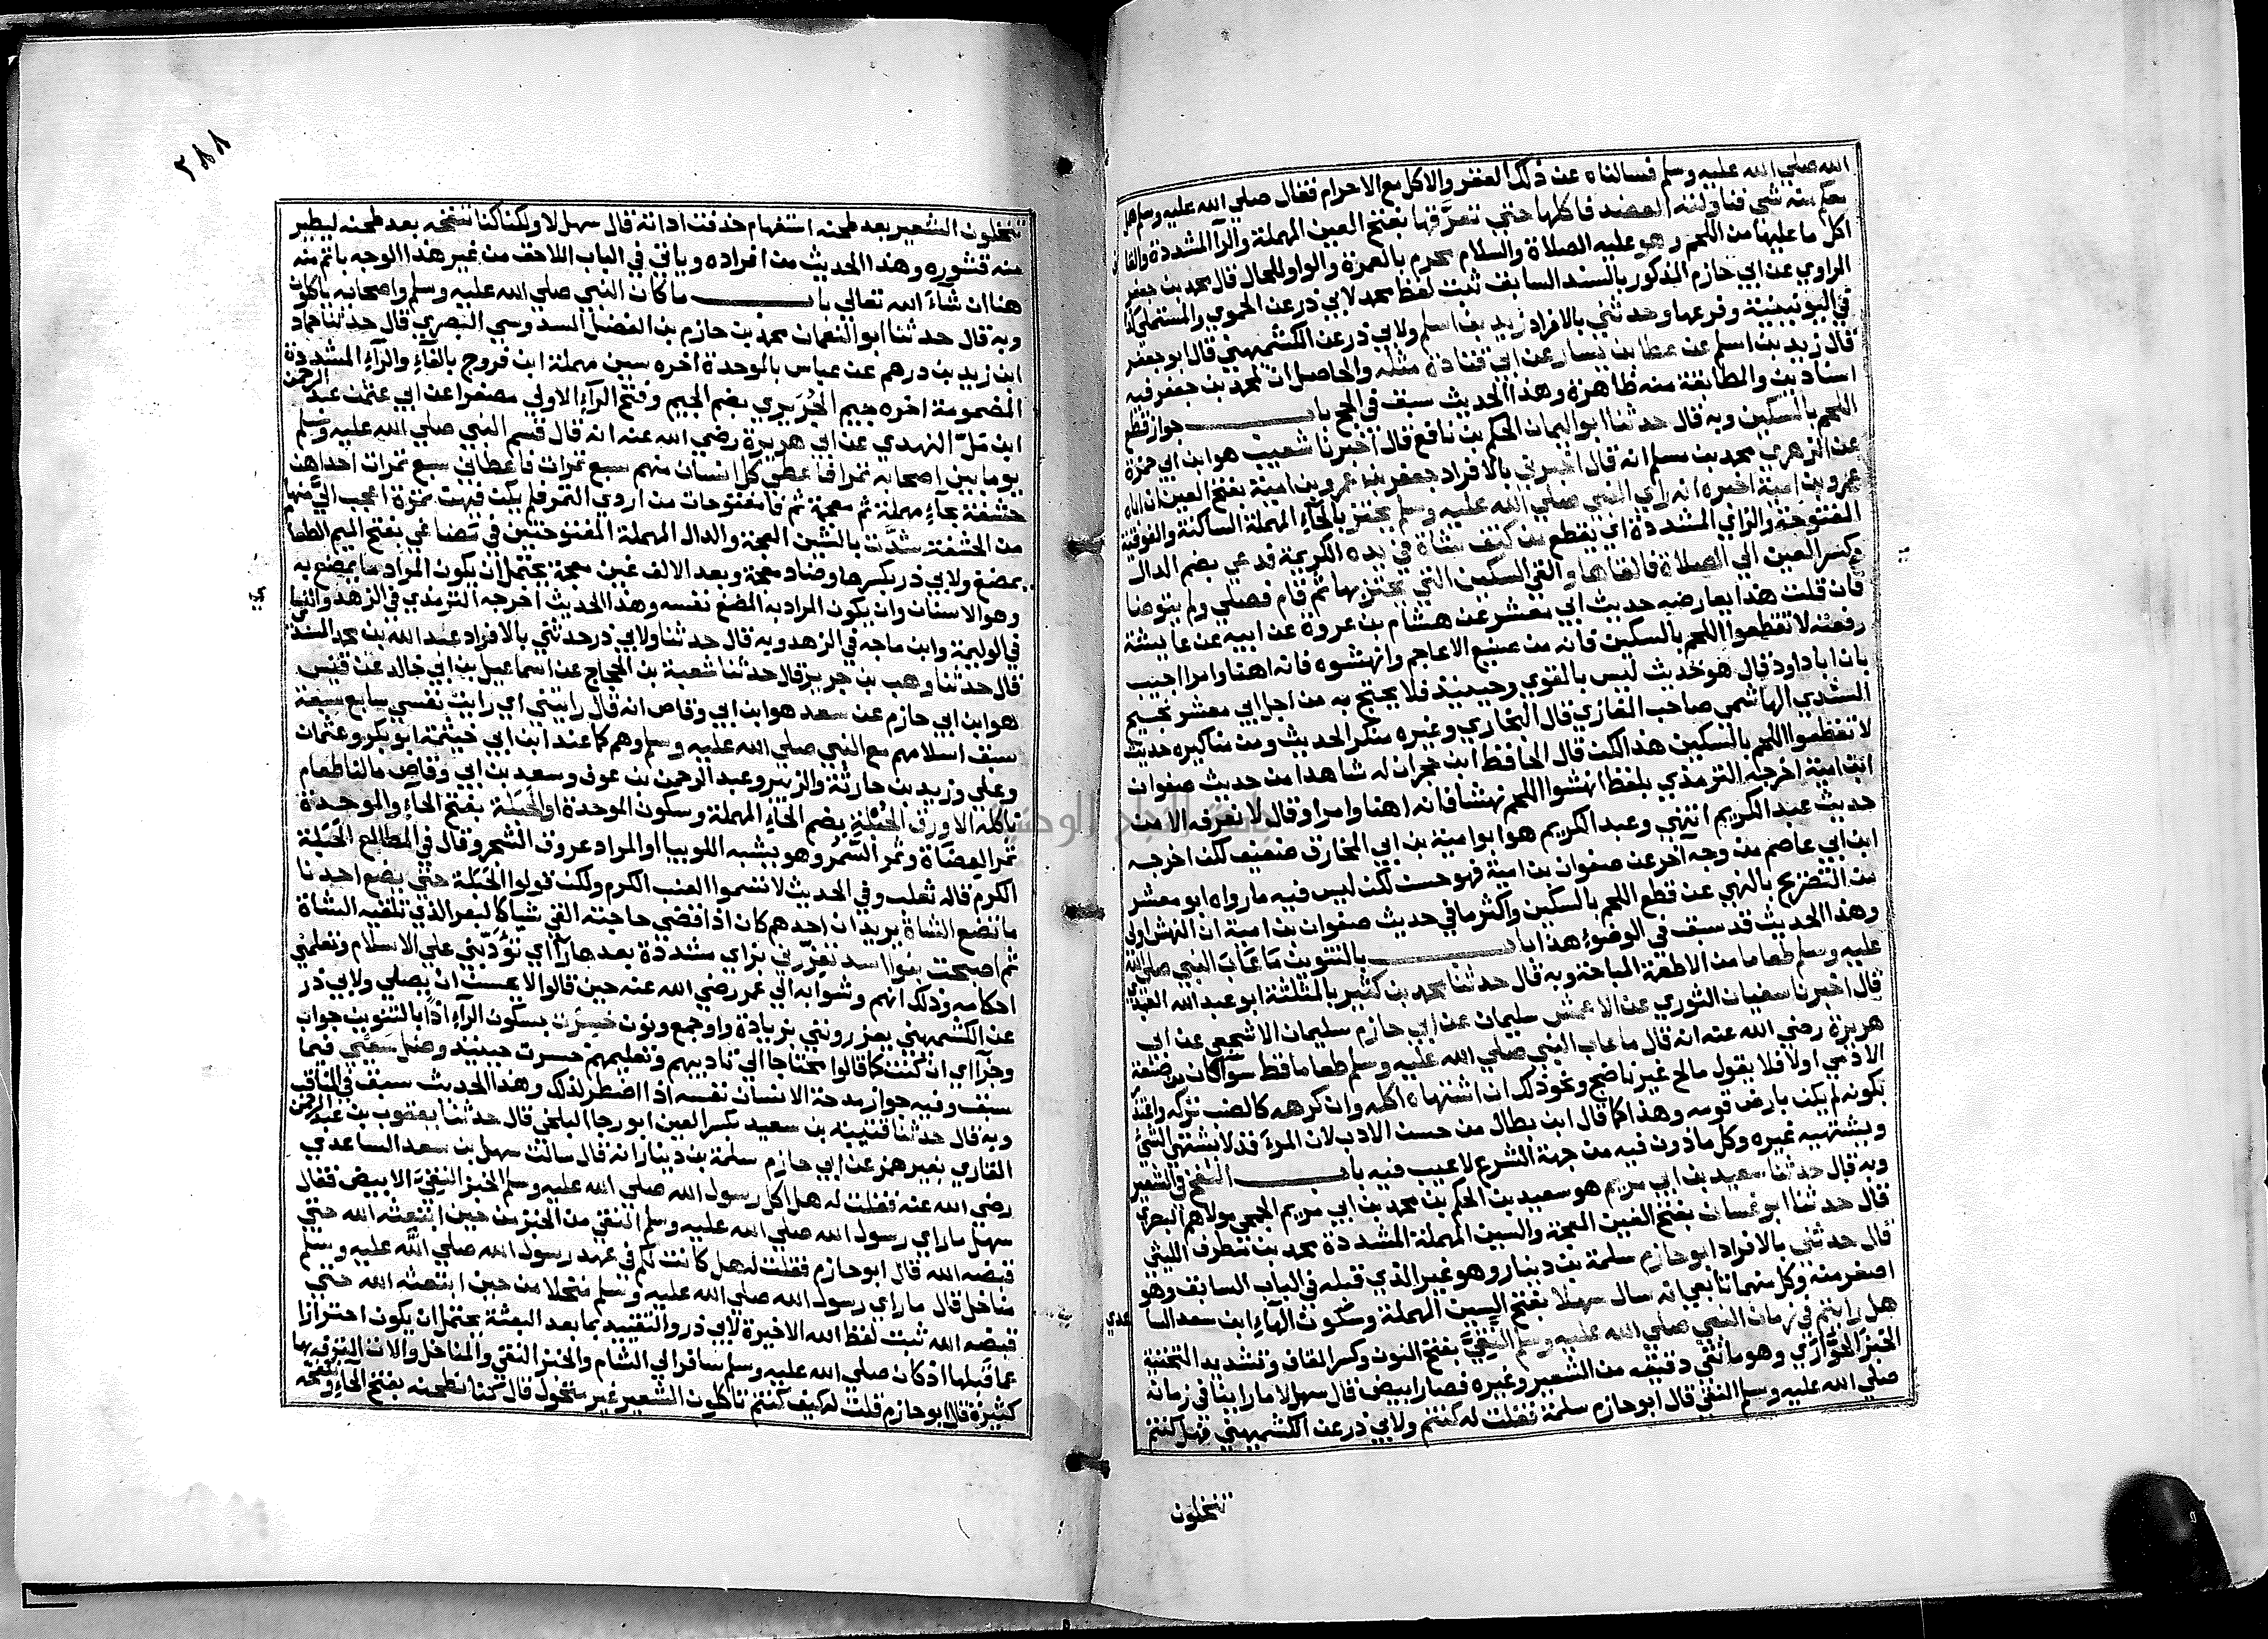 الله صلي الله عليه وسلم فسالناه عن ذلك العقر والاكل مع الاحرام فقال صلي الله عليه وسلم هل
معكم منه شي فناولته العضد فاكلها حتي تعرقها بفتح العين المهملة والرا المشددة والقاف
اكل ما عليها من اللحم وهو عليه الصلاة والسلام محرم بالعمرة والواو للحال قال محمد بن جعفر
الراوي عن ابي حازم المذكور بالسند السابق ثبت لفظ محمد لابي ذر عن الحموي والمستملي كذا
في اليونينية وفرعها وحدثني بالافراد زيد بن اسلم ولابي ذر عن الكشميهني قال ابو جعفر
قال زيد بن اسلم عن عطا بن يسار عن ابي قتادة مثله والحاصل ان لمحمد بن جعفر فيه
اسنادين والمطابقة منه ظاهرة وهذا الحديث سبق في الحج باب جواز قطع
اللحم بالسكين وبه قال حدثنا ابو اليمان الحكم بن نافع قال اخبرنا شعيب هو ابن ابي حمزة
عن الزهري محمد بن مسلم انه قال اخبرني بالافراد جعفر بن عمرو بن امية بفتح العين ان اباه
عمرو بن امية اخبره انه راي النبي صلي الله عليه وسلم يحتز بالحاء المهملة الساكنة والفوقية
المفتوحة والزاي المشددة اي يقطع من كتف شاة في يده الكريمة فدعي بضم الدال
وكسر العين الي الصلاة فالقاها والقي السكين التي يحتز بها ثم قام فصلي ولم يتوضا
فان قلت هذا يعارضه حديث ابي معشر عن هشام بن عروة عن ابيه عن عايشة
رفعته لا تقطعوا اللحم بالسكين فانه من صنيع الاعاجم وانهشوه فانه اهنا وامرا اجيب
بان ابا داود قال هو حديث ليس بالقوي وحينيذ فلا يحتج به من اجل ابي معشر نجيح
السندي الهاشمي صاحب المغازي قال البخاري وغيره منكر الحديث ومن مناكيره حديث
لا تقطعوا اللحم بالسكين هذا لكن قال الحافظ ابن حجر ان له شاهدا من حديث صفوان
ابن امية اخرجه الترمذي بلفظ انهشوا اللحم نهشا فانه اهنا وامرا وقال لا نعرفه الا من
حديث عبد الكريم انتهي وعبد الكريم هو ابو امية بن ابي المخارق ضعيف لكن اخرجه
ابن ابي عاصم من وجه اخر عن صفوان بن امية فهو حسن لكن ليس فيه ما رواه ابو معشر
من التصريح بالنهي عن قطع اللحم بالسكين واكثر ما في حديث صفوان بن امية ان النهش اولي
وهذا الحديث قد سبق في الوضوء هذا باب بالتنوين ما عاب النبي صلي الله
عليه وسلم طعاما من الاطعمة المباحة وبه قال حدثنا محمد بن كثير بالمثلثة ابو عبد الله العبدي
قال اخبرنا سفيان الثوري عن الاعمش سليمان عن ابي حازم سليمان الاشجعي عن ابي
هريرة رضي الله عنه انه قال ما عاب النبي صلي الله عليه وسلم طعاما قط سوا كان من صنعة
الادمي اولا فلا يقول مالح غير ناضج ونحو ذلك ان اشتهاه اكله وان كرهه كالضب تركه واعتذر
بكونه لم يكن بارض قومه وهذا كما قال ابن بطال من حسن الادب لان المرء قد لا يشتهي الشئ
ويشتهيه غيره وكل ماذون فيه من جهة الشرع لا عيب فيه باب النفخ في الشعير
وبه قال حدثنا سعيد بن ابي مريم هو سعيد بن الحكم بن محمد بن ابي مريم الجمحي مولاهم البصري
قال حدثنا ابو غسان بفتح الغين المعجمة والسين المهملة المشددة محمد بن مطرف الليثي
قال حدثني بالافراد ابو حازم سلمة بن دينار وهو غير الذي قبله في الباب السابق وهو
اصغر منه وكل منهما تابعي انه سال سهلا بفتح السين المهملة وسكون الهاء ابن سعد الساعدي
هل رايتم في زمان النبي صلي الله عليه وسلم النقي بفتح النون وكسر القاف وتشديد التحتية
الخبز الحواري وهو ما نقي دقيقه من الشعير وغيره فصار ابيض قال سهل لا ما راينا في زمانه
صلي الله عليه وسلم النقي قال ابو حازم سلمة فقلت له كنتم ولابي ذر عن الكشميهني فهل كنتم
تنخلون
٣٨٨
تنخلون الشعير بعد طحنه استفهام حذفت اداته قال سهل لا ولكنا كنا ننفخه بعد طحنه ليطير
منه قشوره وهذا الحديث من افراده وياتي في الباب اللاحق من غير هذا الوجه باتم منه
هنا ان شاء الله تعالي باب ما كان النبي صلي الله عليه وسلم واصحابه ياكلون
وبه قال حدثنا ابو النعمان محمد بن حازم بن الفضل السدوسي البصري قال حدثنا حماد
ابن زيد بن درهم عن عباس بالموحدة اخره سين مهملة ابن فروج بالفاء والراء المشددة
المضمومة اخره جيم الجريري بضم الجيم وفتح الراء الاولي مصغرا عن ابي عثمن عبد الرحمن
ابن مل النهدي عن ابي هريرة رضي الله عنه انه قال قسم النبي صلي الله عليه وسلم
يوما بين اصحابه تمرا فاعطي كل انسان منهم سبع تمرات فاعطاني سبع تمرات احداهن
حشفة بحاء مهملة ثم معجمة ثم فا مفتوحات من اردي التمر فلم يكن فيهن تمرة اعجب الي منها
من الحشفة شدت بالشين المعجمة والدال المهملة المفتوحتين في مضاغي بفتح الميم الطعام
يمضغ ولابي ذر بكسرها وضاد معجمة وبعد الالف غين معجمة يحتمل ان يكون المراد ما يمضغ به
وهو الاسنان وان يكون المراد به المضغ نفسه وهذا الحديث اخرجه الترمذي في الزهد والنسائي
في الوليمة وابن ماجه في الزهد وبه قال حدثنا ولابي ذر حدثني بالافراد عبد الله بن محمد المسندي
قال حدثنا وهب بن جرير قال حدثنا شعبة بن الحجاج عن اسماعيل بن ابي خالد عن قيس
هو ابن ابي حازم عن سعد هو ابن ابي وقاص انه قال رايتني اي رايت نفسي سابع سبعة
سبق اسلامهم مع النبي صلي الله عليه وسلم وهم كما عند ابن ابي خيثمة ابو بكر وعثمان
وعلي وزيد بن حارثة والزبير وعبد الرحمن بن عوف وسعد بن ابي وقاص ما لنا طعام
ناكله الا ورق الحبلة بضم الحاء المهملة وسكون الموحدة او الحبلة بفتح الحاء والموحدة
ثمر العضاة وثمر السمر وهو يشبه اللوبيا او المراد عروق الشجر وقال في المطالع الحبلة
الكرم قاله ثعلب وفي الحديث لا تسموا العنب الكرم ولكن قولوا الحبلة حتي يضع احدنا
ما تضع الشاة يريد ان احدهم كان اذا قضي حاجته القي شيا كالبعر الذي تلقيه الشاة
ثم اصبحت بنوا اسد تعزرني بزاي مشددة بعدها را اي تؤدبني علي الاسلام وتعلمني
احكامه وذلك انهم وشوا به الي عمر رضي الله عنه حين قالوا لا يحسن ان يصلي ولابي ذر
عن الكشميهني يعزرونني بزيادة واو جمع ونون خسرت بسكون الراء اذا بالتنوين جواب
وجزا اي ان كنت كما قالوا محتاجا الي تاديبهم وتعليمهم خسرت حينيذ وضل سعيي فيما
سبق وفيه جواز مدحة الانسان نفسه اذا اضطر لذلك وهذا الحديث سبق في المناقب
وبه قال حدثنا قتيبة بن سعيد بكسر العين ابو رجا البلخي قال حدثنا يعقوب بن عبد الرحمن
القاري بغير همز عن ابي حازم سلمة بن دينار انه قال سالت سهل بن سعد الساعدي
رضي الله عنه فقلت له هل اكل رسول الله صلي الله عليه وسلم الخبز النقي الابيض فقال
سهل ما راي رسول الله صلي الله عليه وسلم النقي من الخبز من حين ابتعثه الله حتي
قبضه الله قال ابو حازم فقلت له هل كانت لكم في عهد رسول الله صلي الله عليه وسلم
مناخل قال ما راي رسول الله صلي الله عليه وسلم منخلا من حين ابتعثه الله حتي
قبضه الله ثبت لفظ الله الاخيرة لابي ذر والتقييد بما بعد البعثة يحتمل ان يكون احترازا
عما قبلها اذ كان صلي الله عليه وسلم سافر الي الشام والخبز النقي والمناخل والات الترفه بها
كثيرة قال ابو حازم قلت له كيف كنتم تاكلون الشعير غير منخول قال كنا نطحنه بفتح الحاء وننفخه